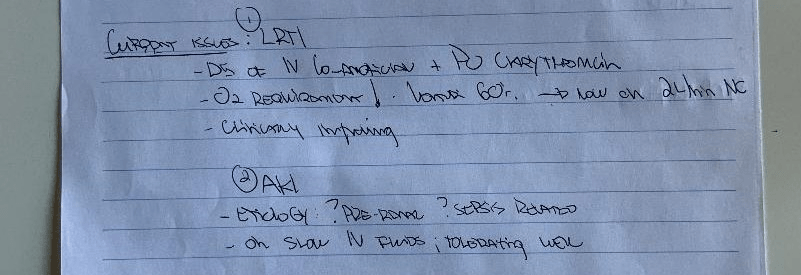 ①
Current issues: LRTI
- D5 of IV Co-amoxiclav + PO Clarythromcin
- O2 Requirement ↓. 60%. → now on 2L/min NC
- Clinically improving
② AKI
- Etiology: ? Pre-renal ? Sepsis related
- On slow IV fluids ; tolerating well